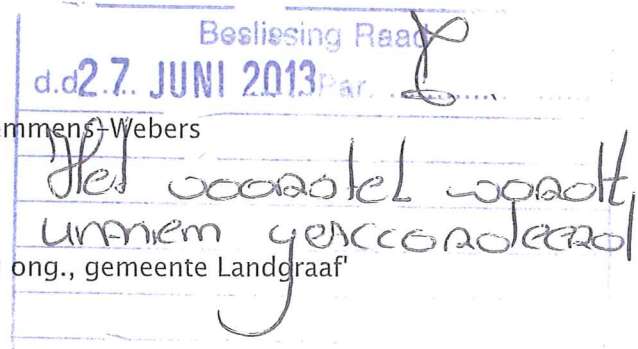 Beslissing Raad
d.d. 27 JUNI 2013 Par. ..........
mmens-Webers
Het voorstel wordt
unaniem geaccordeerd
ong., gemeente Landgraaf'